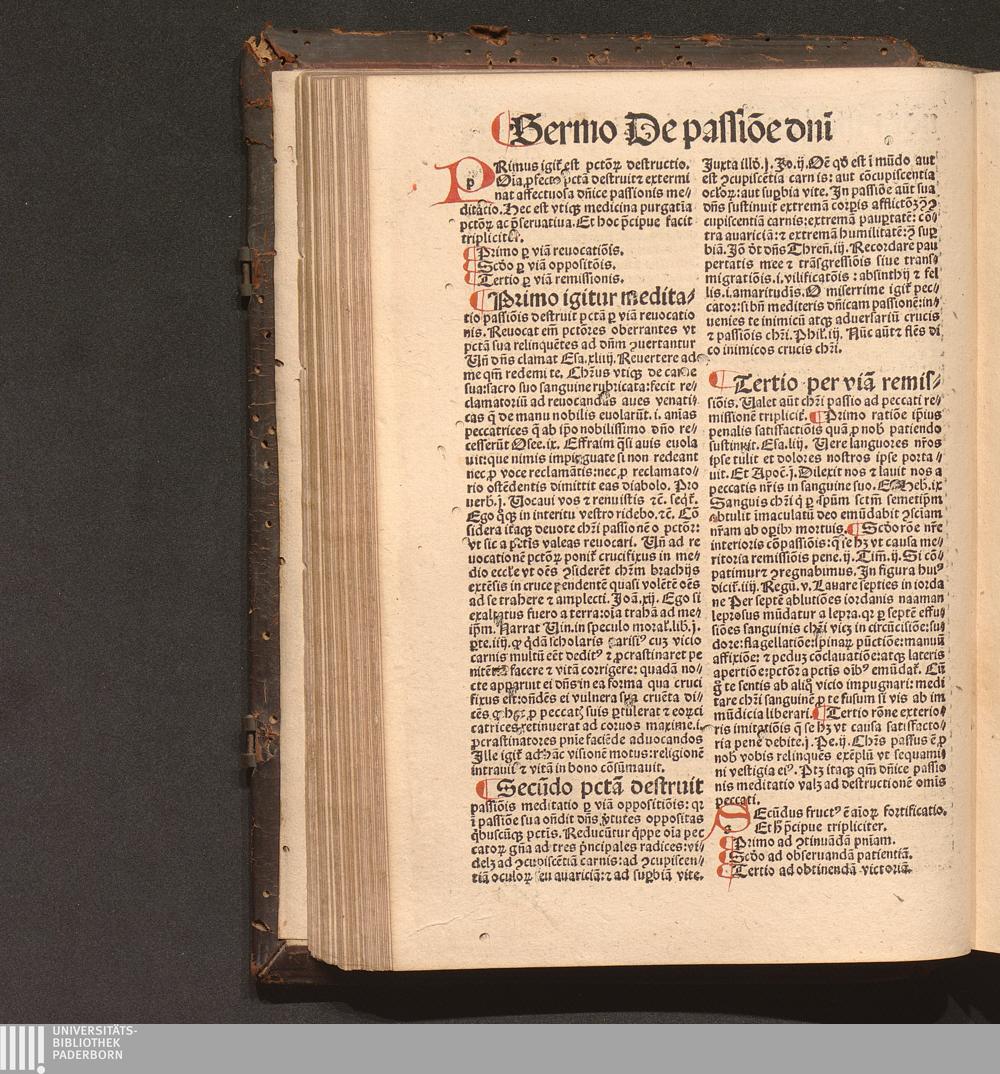 Sermo De passiõe dñi
PRimus igit᷑ est pctõꝝ destructio.
Oĩa ꝓfecto pctã destruit ⁊ extermi
nat affectuosa dñice passionis me⸗
ditacio. Hec est vtiqꝫ medicina purgatia
pctõꝝ ac p̃seruatiua. Et hoc p̃cipue facit
tripliciter.
Primo ꝑ viã reuocatiõis.
Scđo ꝑ viã oppositõis.
Tertio ꝑ viã remissionis.
Primo igitur medita⸗
tio passiõis destruit pctã ꝑ viã reuocatio
nis. Reuocat em̃ pctõres oberrantes vt
pctã sua relinquẽtes ad dñm ꝯuertantur
Uñ dñs clamat Esa. xliiij. Reuertere ad
me qm̃ redemi te. Chr̃us vtiqꝫ de carne
sua: sacro suo sanguine rubricata: fecit re⸗
clamatoriũ ad reuocandas aues venati⸗
cas q̃ de manu nobilis euolarũt. i. anĩas
peccatrices q̃ ab ip̃o nobilissimo dño re⸗
cesserũt Osee. ix. Effraim q̃si auis euola
uit: que nimis impinguate si non redeant
nec ꝓ voce reclamãtis: nec ꝓ reclamato⸗
rio ostẽdentis dimittit eas diabolo. Pro
uerb. j. Uocaui vos ⁊ renuistis ⁊c̃. seqt᷑.
Ego q̊qꝫ in interitu vestro ridebo. ⁊c̃. Cõ
sidera itaqꝫ deuote chr̃i passionẽ o pctõr:
vt sic a pctĩs valeas reuocari. Uñ ad re
uocationẽ pctõꝝ ponit᷑ crucifixus in me⸗
dio eccłe vt oẽs ꝯsiderẽt chr̃m brachijs
extẽsis in cruce pendentẽ quasi volẽtẽ oẽs
ad se trahere ⁊ amplecti. Joã. xij. Ego si
exaltatus fuero a terra: oĩa trahã ad me⸗
ip̃m. Narrat Uin. in speculo moral̓. lib. j.
ꝑte. iiij. ꝙ q̇dã scholaris parisꝰ cuꝫ vicio
carnis multũ eẽt deditꝰ ⁊ ꝓcrastinaret pe
nitẽtiã facere ⁊ vitã corrigere: quadã no⸗
cte apparuit ei dñs in ea forma qua cruci
fixus est: ondẽs ei vulnera sua cruẽta di⸗
cẽs ꝓ peccat̃ suis ꝑtulerat ⁊ eoꝝ ci
catrices retinuerat ad coruos maxime. i.
ꝓcrastinatores pnĩe faciẽde aduocandos
Jlle igit᷑ ad hãc visionẽ motus: religionẽ
intrauit ⁊ vitã in bono cõsũmauit.
Secũdo pctã destruit
passiõis meditatio ꝑ viã oppositiõis: qꝛ
ĩ passiõe sua oñdit dñs v̓tutes oppositas
q̇buscũqꝫ pctĩs. Reducũtur q̇ppe oĩa pec
catoꝝ gñа ad tres p̃ncipales radices: vi⸗
delꝫ ad ꝯcupiscẽtiã carnis: ad ꝯcupiscen⸗
tiã oculoꝝ seu auariciã: ⁊ ad suꝑbiã vite.
Juxta illđ. j. Jo. ij. Oẽ qđ est ĩ mũdo aut
est ꝯcupiscẽtia carnis: aut cõcupiscentia
oc̓loꝝ: aut suꝑbia vite. Jn passiõe aũt sua
dñs sustinuit extremã corꝑis afflictõꝫ ꝯ ꝯ
cupiscentiam carnis: extremã pauꝑtatẽ: cõ⸗
tra auariciã: ⁊ extremã humilitatẽ: ꝯ suꝑ
biã. Jõ đt dñs Thren̄. iij. Recordare pau
pertatis mee ⁊ trãsgressiõis siue trans⸗
migratiõis. i. vilificatõis: absinthij ⁊ fel
lis. i. amaritudĩs. O miserrime igit᷑ pec⸗
cator: si bñ mediteris dñicam passionẽ: in⸗
uenies te inimicũ atqꝫ aduersariũ crucis
⁊ passiõis chr̃i. Phil̓. iij. Nũc aũt ⁊ flẽs di
co inimicos crucis chr̃i.
Tertio per viã remis⸗
siõis. Ualet aũt chr̃i passio ad peccati re⸗
missionẽ triplicit᷑. Primo ratiõe ip̃ius
penalis satisfactiõis quã ꝓ nob̓ patiendo
sustinuit. Esa. liij. Uere languores nr̃os
ipse tulit et dolores nostros ipse porta⸗
uit. Et Apoc̃. j. Dilexit nos ⁊ lauit nos a
peccatis nr̃is in sanguine suo. Et Heb. ix
Sanguis chr̃i q̇ ꝑ sp̃um sctm̃ semetip̃m
obtulit imaculatũ deo emũdabit ꝯsciam
nr̃am ab oꝑibꝰ mortuis. Scđo rõe nr̃e
interioris cõpassiõis: q̃ se hꝫ vt causa me⸗
ritoria remissiõis pene. ij. Tim̃. ij. Si cõ⸗
patimur ⁊ ꝯregnabimus. Jn figura huiꝰ
dicit᷑. iiij. Regũ. v. Lauare septies in iorda
ne Per septẽ ablutiões iordanis naaman
leprosus mũdatur a lepra. qꝛ ꝑ septẽ effu⸗
siões sanguinis chr̃i vicꝫ in circũcisiõe: su⸗
dore: flagellatiõe: spinaꝝ pũctiõe: manuũ
affixiõe: ⁊ peduꝫ cõclauatiõe: atqꝫ lateris
apertiõe: pctõr a pctis oibꝰ emũdat᷑. Cũ
g̊ te sentis ab aliq̊ vicio impugnari: medi
tare chr̃i sanguinẽ ꝓ te fusum si vis ab im
mũdicia liberari. Tertio rõne exterio⸗
ris imitatiõis q̃ se hꝫ vt causa satisfacto⸗
ria pene debite. j. Pe. ij. Chr̃s passus ẽ ꝓ
nob̓ vobis relinquẽs exẽplũ vt sequami
ni vestigia eiꝰ. Ptꝫ itaqꝫ qm̃ dñice passio
nis meditatio valꝫ ad destructionẽ omis
peccati.
SEcũdus fructꝰ ẽ aĩoꝝ fortificatio.
Et h̓ p̃cipue tripliciter.
Primo ad ꝯtinuãdã pnĩam.
Scđo ad obseruandã patientiã.
Tertio ad obtinendã victoriã.
UNIVERSITÄTS-
BIBLIOTHEK
PADERBORN